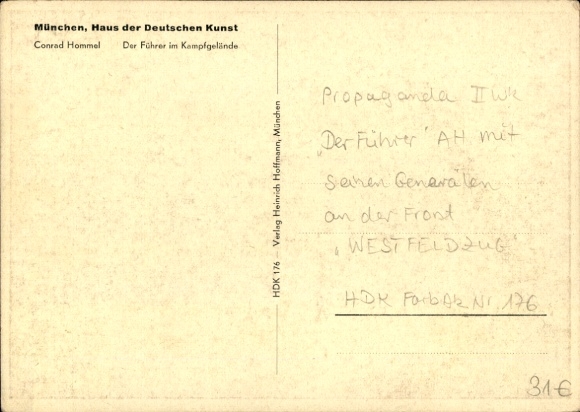 München, Haus der Deutschen Kunst
Conrad Hommel Der Führer im Kampfgelände
HDK 176 – Verlag Heinrich Hoffmann, München
Propaganda II Wk
„Der Führer' AH mit
seinen Generälen
an der Front
„WESTFELDZUG"
HDK FarbAk Nr. 176
31€